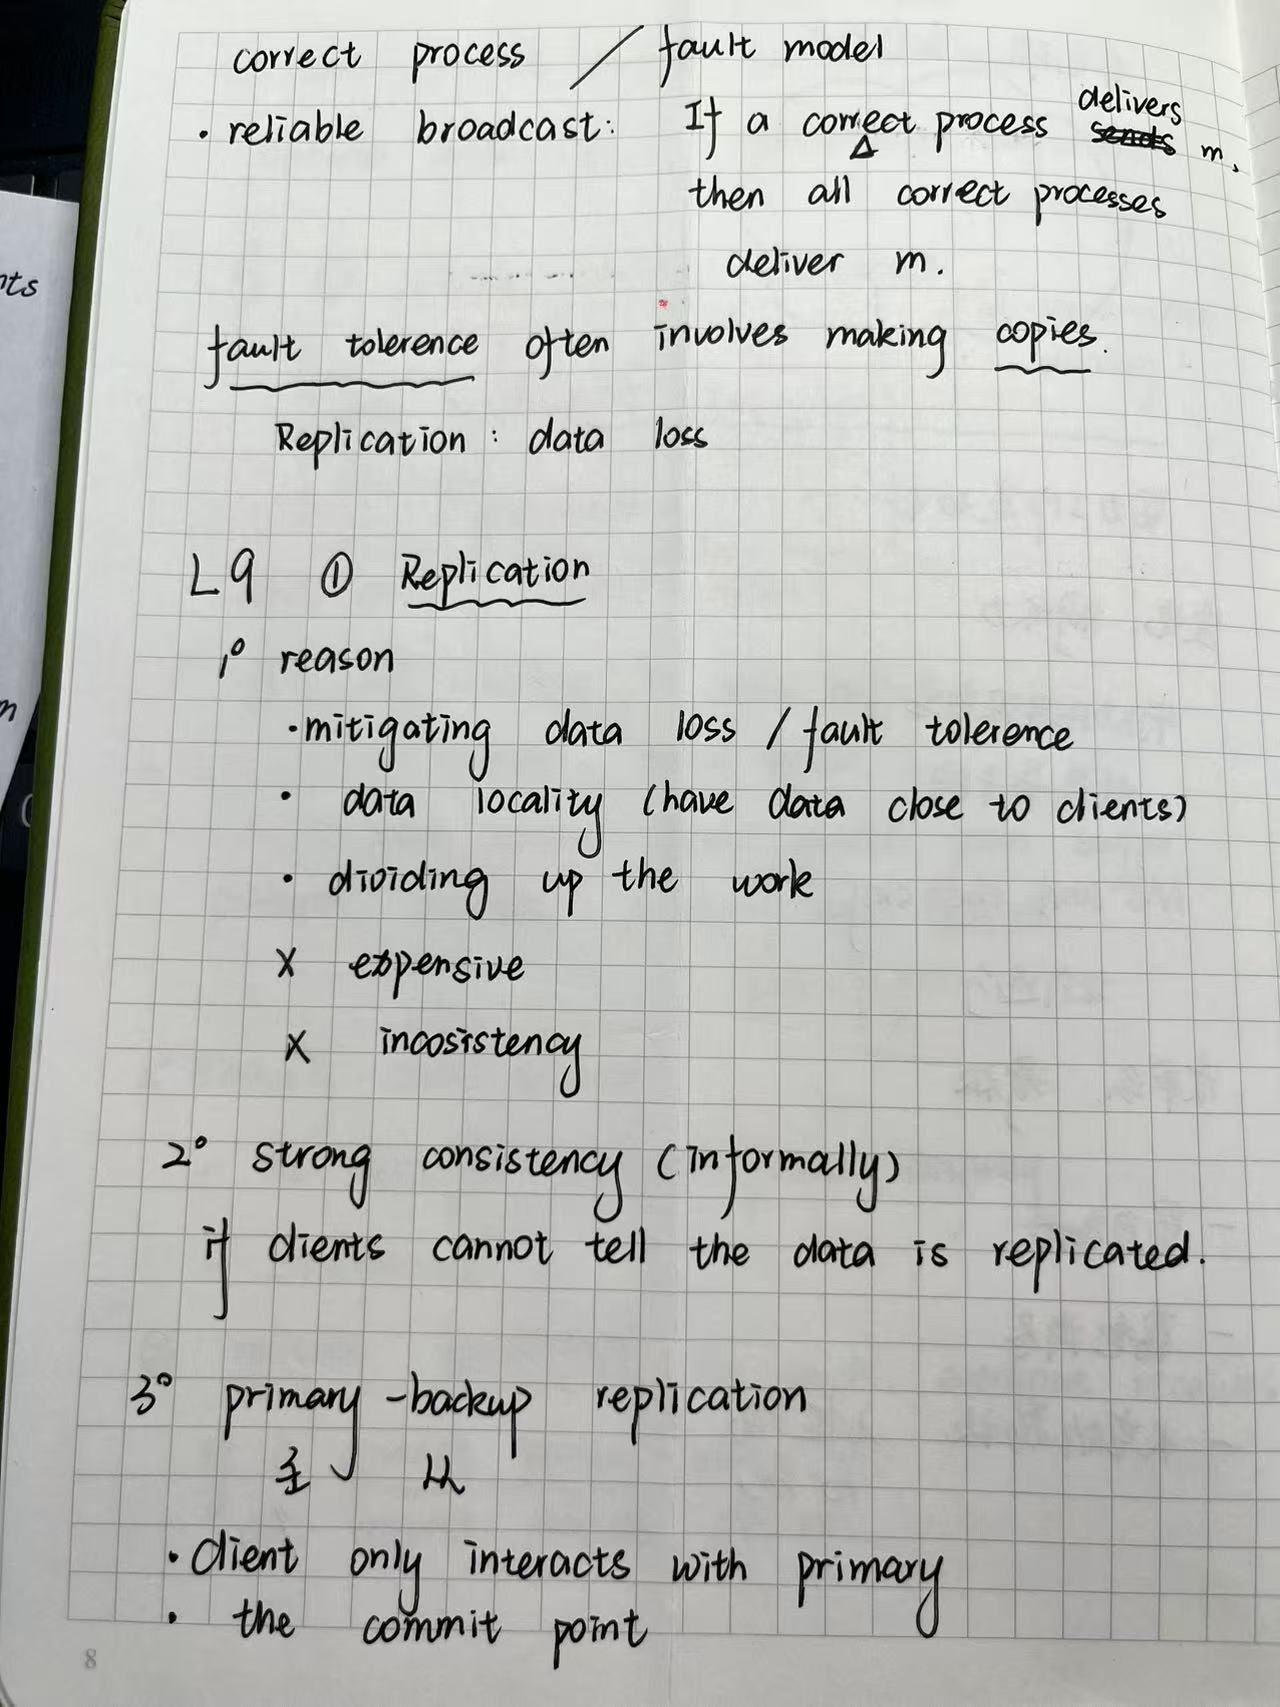 correct process / fault model
• reliable broadcast: If a correct process delivers m,
then all correct processes
deliver m.
fault tolerence often involves making copies.
Replication: data loss
L9 ① Replication
1° reason
• mitigating data loss / fault tolerence
• data locality (have data close to clients)
• dividing up the work
x expensive
x incosistency
2° strong consistency (informally)
if clients cannot tell the data is replicated.
3° primary-backup replication
主 从
• Client only interacts with primary
• the commit point
8
nts